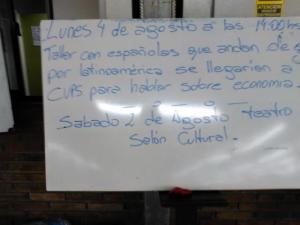 ATENCIÓN
Lunes 4 de agosto a las 19:00 hs
Taller con españolas que andan de
por latinoamérica se llegarian a
CUPS para hablar sobre economia.
Sabado 2 de Agosto teatro
Salón Cultural.